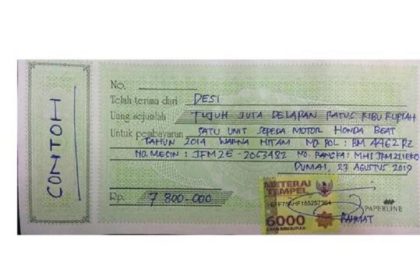 CONTOH
No.
Telah terima dari DESI
Uang sejumlah TUJUH JUTA DELAPAN RATUS RIBU RUPIAH
Untuk pembayaran SATU UNIT SEPEDA MOTOR HONDA BEAT
TAHUN 2014 WARNA HITAM NO. POL : BM 4462 RZ
NO. MESIN : JFM2E - 2063482 NO. RANGKA :
DUMAI, 27 AGUSTUS 2019
Rp. 7 800.000
METERAI
TEMPEL
6000
ENAM RIBU RUPIAH
RAHMAT
PAPERLINE